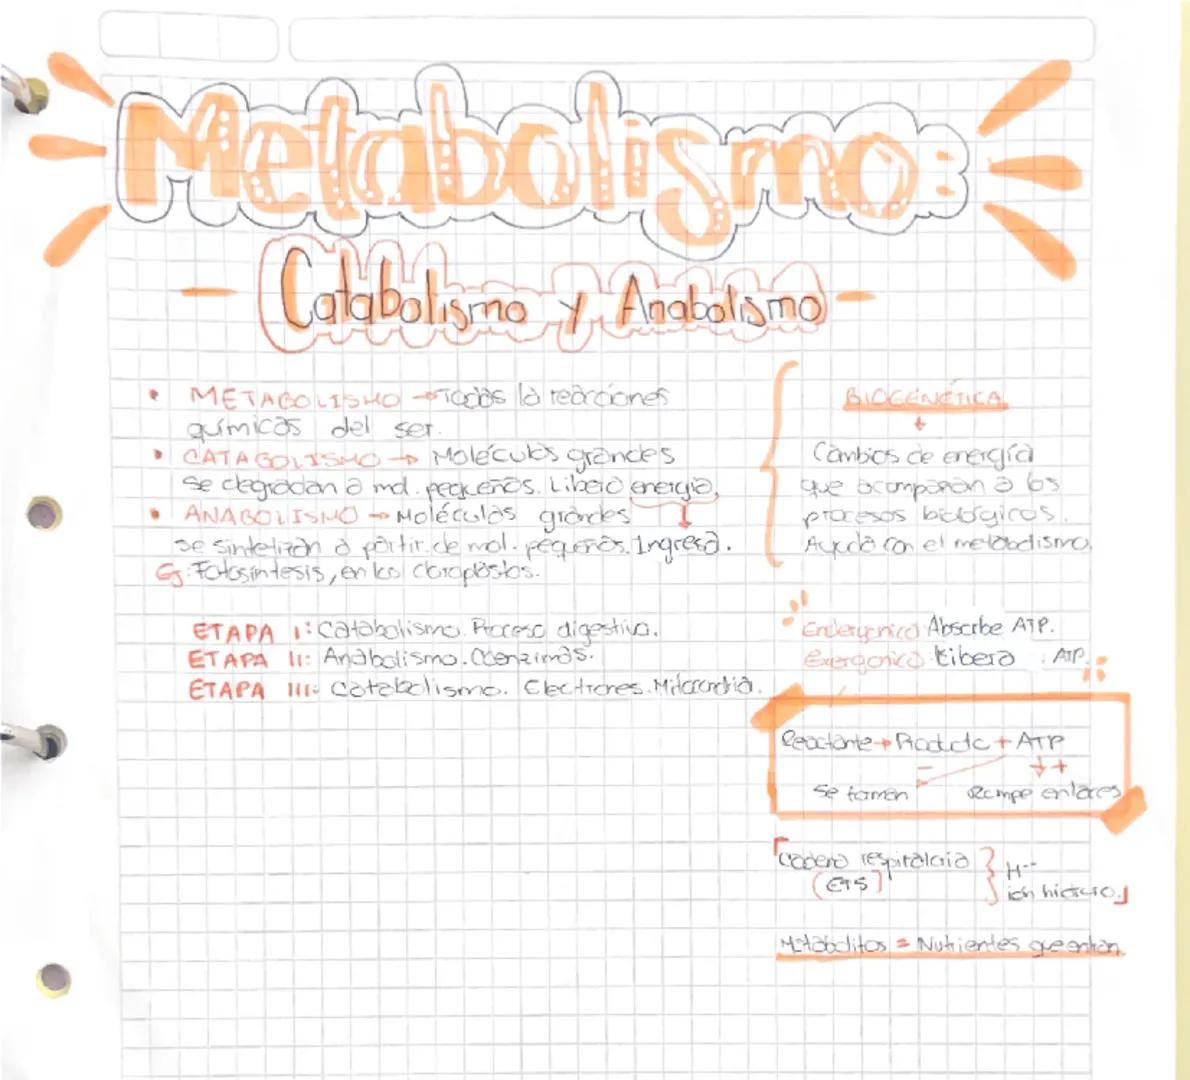 Metabolismo:
Catabolismo y Anabolismo
• METABOLISMO → Todas la reacciones
químicas del ser.
• CATABOLISMO → Moléculas grandes
se degradan a mol. pequeñas. Libero energía.
• ANABOLISMO → Moléculas grandes
se sintetizan a partir de mol. pequeñas. Ingresa.
Ej: Fotosíntesis, en los cloroplastos.
ETAPA I: Catabolismo. Proceso digestivo.
ETAPA II: Anabolismo. Coenzimas.
ETAPA III: Catabolismo. Electrones. Mitocondria.
BIOGENÉTICA
↓
Cambios de energía
que acompañan a los
procesos biológicos.
Ayuda con el metabolismo.
Endergonico Absorbe ATP.
Exergonico Libera ATP.
Reactante → Producto + ATP
- ↓ +
Se forman Rompe enlaces
Cadena respiratoria
(ETS)
H-
ión hidruro.
Metabolitos = Nutrientes que entran.